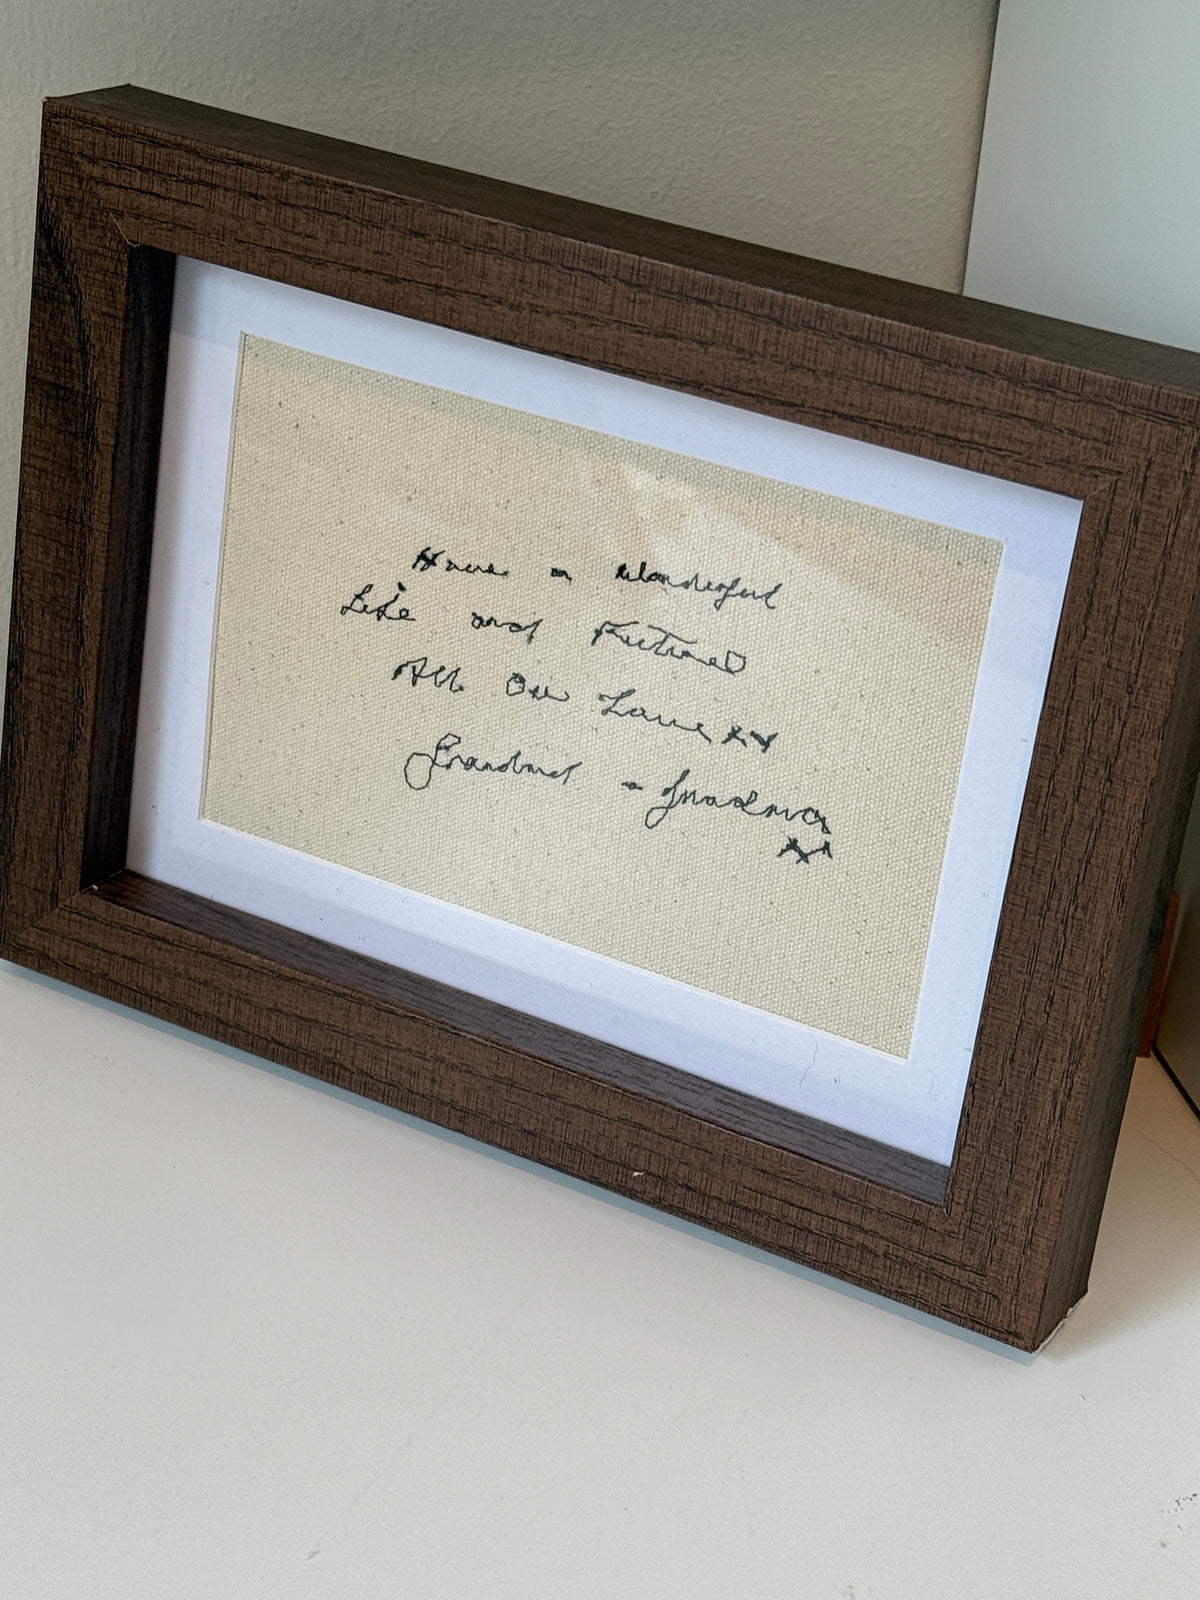 Have a Wonderful
Life and Future
All Our Love xx
Grandad & Grandma
x